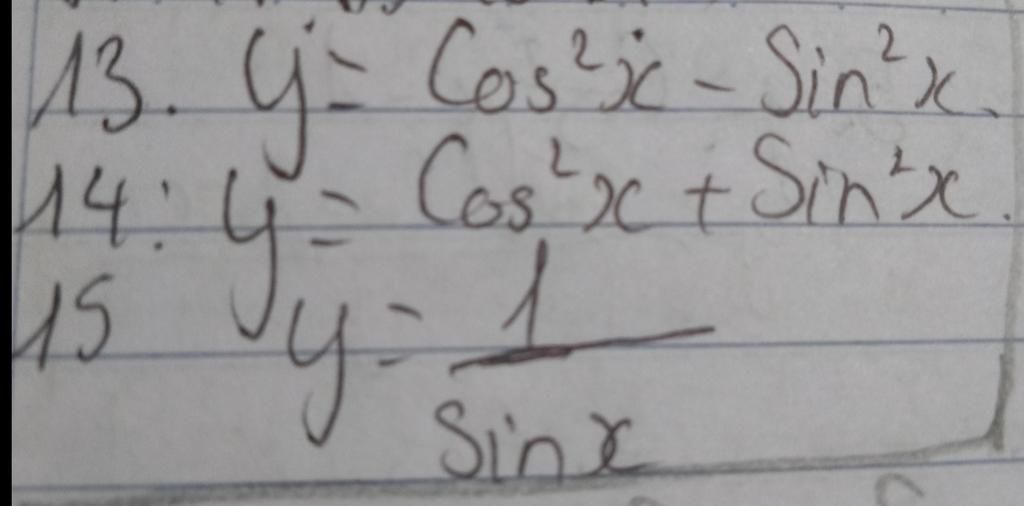 13. y = Cos²x - Sin²x.
14. y = Cos²x + Sin²x.
15 y = 1
Sinx